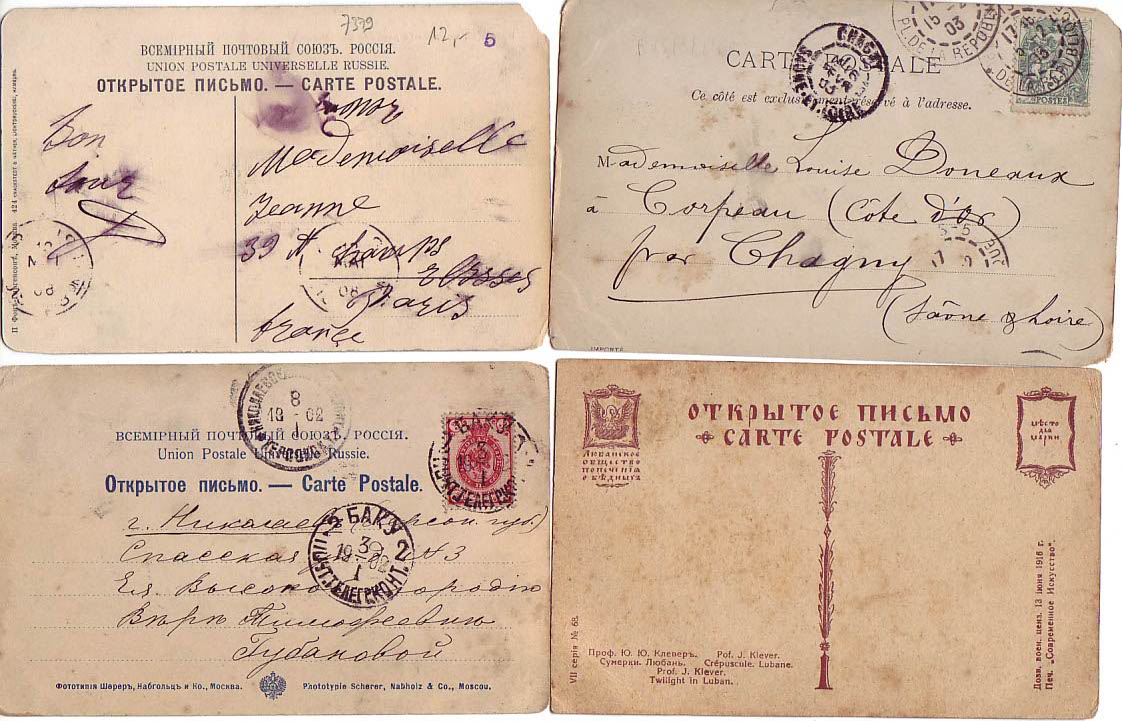 7379
12,-
5
ВСЕМІРНЫЙ ПОЧТОВЫЙ СОЮЗЪ. РОССІЯ.
UNION POSTALE UNIVERSELLE RUSSIE.
ОТКРЫТОЕ ПИСЬМО. — CARTE POSTALE.
Bon
Mademoiselle
Jeanne
39 Champs
Elysses
Paris
France
08
08
CARTE POSTALE
Ce côté est exclusivement réservé à l'adresse.
CHAGNY
SAONE-ET-LOIRE
PL. DE LA REPUBLIQUE
15
03
POSTES
Mademoiselle Louise Doneaux
à Corpeau (Côte d'Or)
par Chagny
(Saône & Loire)
IMPORTÉ
8
19-02
1
ВСЕМІРНЫЙ ПОЧТОВЫЙ СОЮЗЪ. РОССІЯ.
Union Postale Universelle Russie.
Открытое письмо. — Carte Postale.
г. Николаевъ (Херсон. губ)
Спасская № 3
Ея Высокородію
Вѣрѣ Тимофеевнѣ
Губановой
2 БАКУ 2
30
19-02
1
ПОЧТ. ТЕЛЕГР. КОНТ.
БАКУ
Фототипія Шереръ, Набгольцъ и Ко., Москва.
Phototypie Scherer, Nabholz & Co., Moscou.
ОТКРЫТОЕ ПИСЬМО
CARTE POSTALE
ЛЮБАНСКОЕ
ОБЩЕСТВО
ПОПЕЧЕНІЯ
О БѢДНЫХЪ
МѢСТО
ДЛЯ
МАРКИ
VII серія № 68.
Проф. Ю. Ю. Клеверъ. Pof. J. Klever.
Сумерки. Любань. Crépuscule. Lubane.
Prof. J. Klever.
Twilight in Luban.
Дозв. воен. ценз. 13 іюня 1916 г.
Печ. „Современное Искусство".